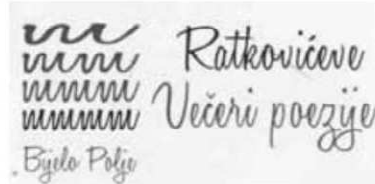 Ratkovićeve
Večeri poezije
Bijelo Polje